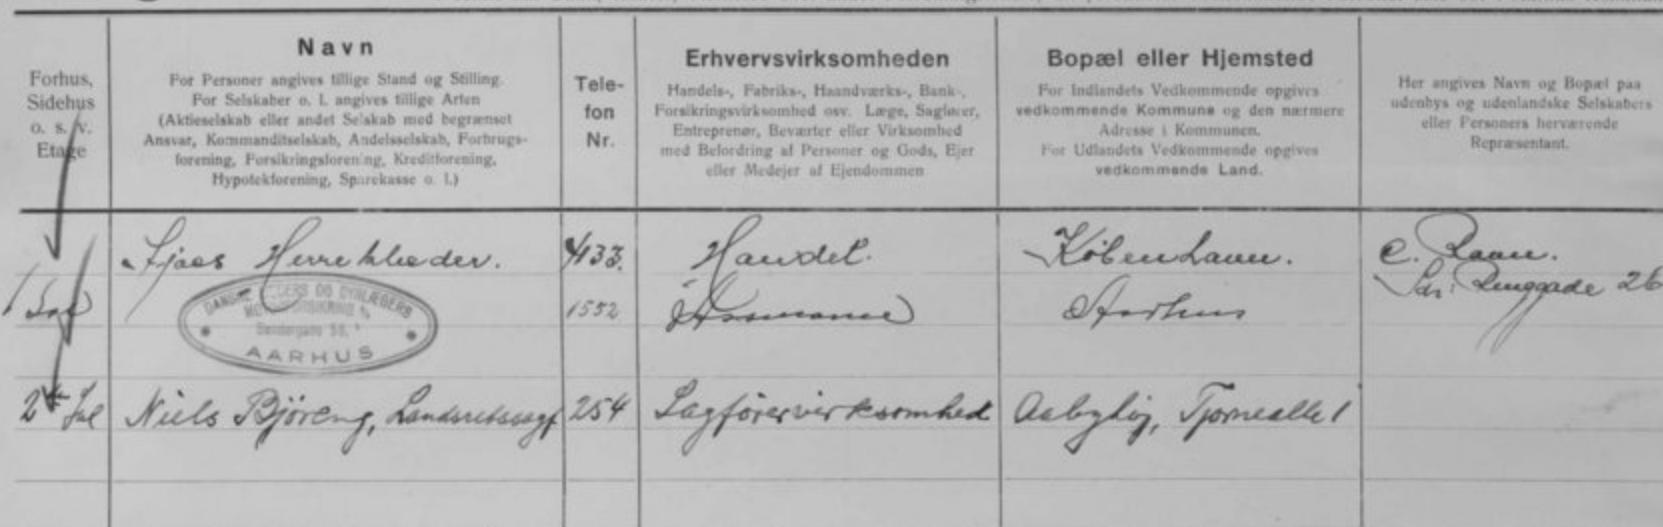 Forhus,
Sidehus
o. s. v.
Etage
Navn
For Personer angives tillige Stand og Stilling.
For Selskaber o. l. angives tillige Arten
(Aktieselskab eller andet Selskab med begrænset
Ansvar, Kommanditselskab, Andelsselskab, Forbrugs-
forening, Forsikringsforening, Kreditforening,
Hypotekforening, Sparekasse o. l.)
Tele-
fon
Nr.
Erhvervsvirksomheden
Handels-, Fabriks-, Haandværks-, Bank-,
Forsikringsvirksomhed osv. Læge, Sagfører,
Entreprenør, Beværter eller Virksomhed
med Befordring af Personer og Gods, Ejer
eller Medejer af Ejendommen
Bopæl eller Hjemsted
For Indlandets Vedkommende opgives
vedkommende Kommune og den nærmere
Adresse i Kommunen.
For Udlandets Vedkommende opgives
vedkommende Land.
Her angives Navn og Bopæl paa
udenbys og udenlandske Selskabers
eller Personers herværende
Repræsentant.
Herreklæder. 4133. Handel. København. C.
Ringgade 26
1 Sal DANSKE OG DYRLÆGERS 1552 Aarhus
AARHUS
2 Sal Niels Björeng, Landsretssagf 254 Sagførervirksomhed Aabyhøj, Tjørnealle 1